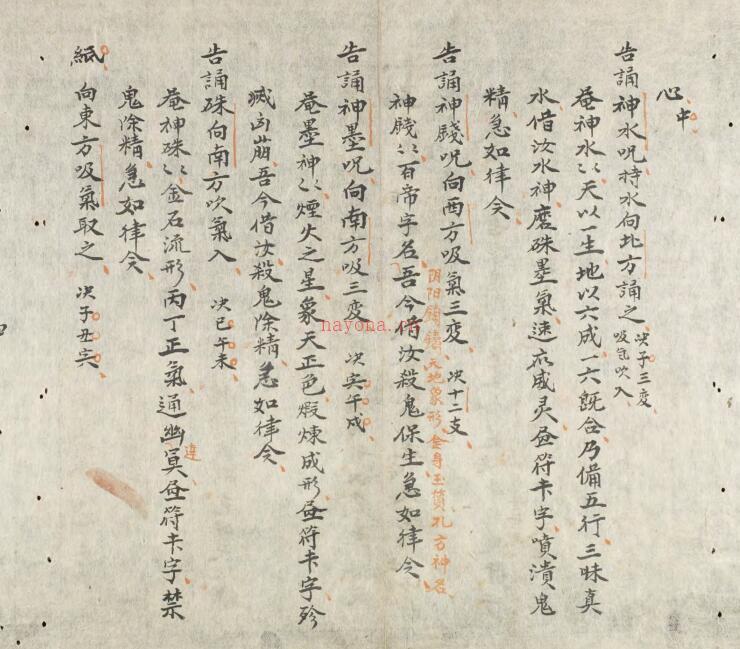 心中
告誦神水呪持水向北方誦之 决子三変
吸氣吹入
奄神水〻天以一生地以六成一六既合乃備五行三昧真
水借汝水神磨硃墨氣速应感灵昼符卡字噴潰鬼
精急如律令
告誦神賤呪向西方吸氣三変 决十二支
阴阳鋳天地象形金身玉質孔方神名
神賤〻百帝字名吾今借汝殺鬼保生急如律令
告誦神墨呪向南方吸三変 决寅午戌
奄墨神〻煙火之星象天正色煅煉成形昼符卡字殄
滅凶崩吾今借汝殺鬼除精急如律令
告誦硃向南方吹氣入 决巳午未
奄神硃〻金石流形丙丁正氣通幽冥昼符卡字禁
違
鬼除精急如律令
紙 向東方吸氣取之 决子丑寅
nayona.cn